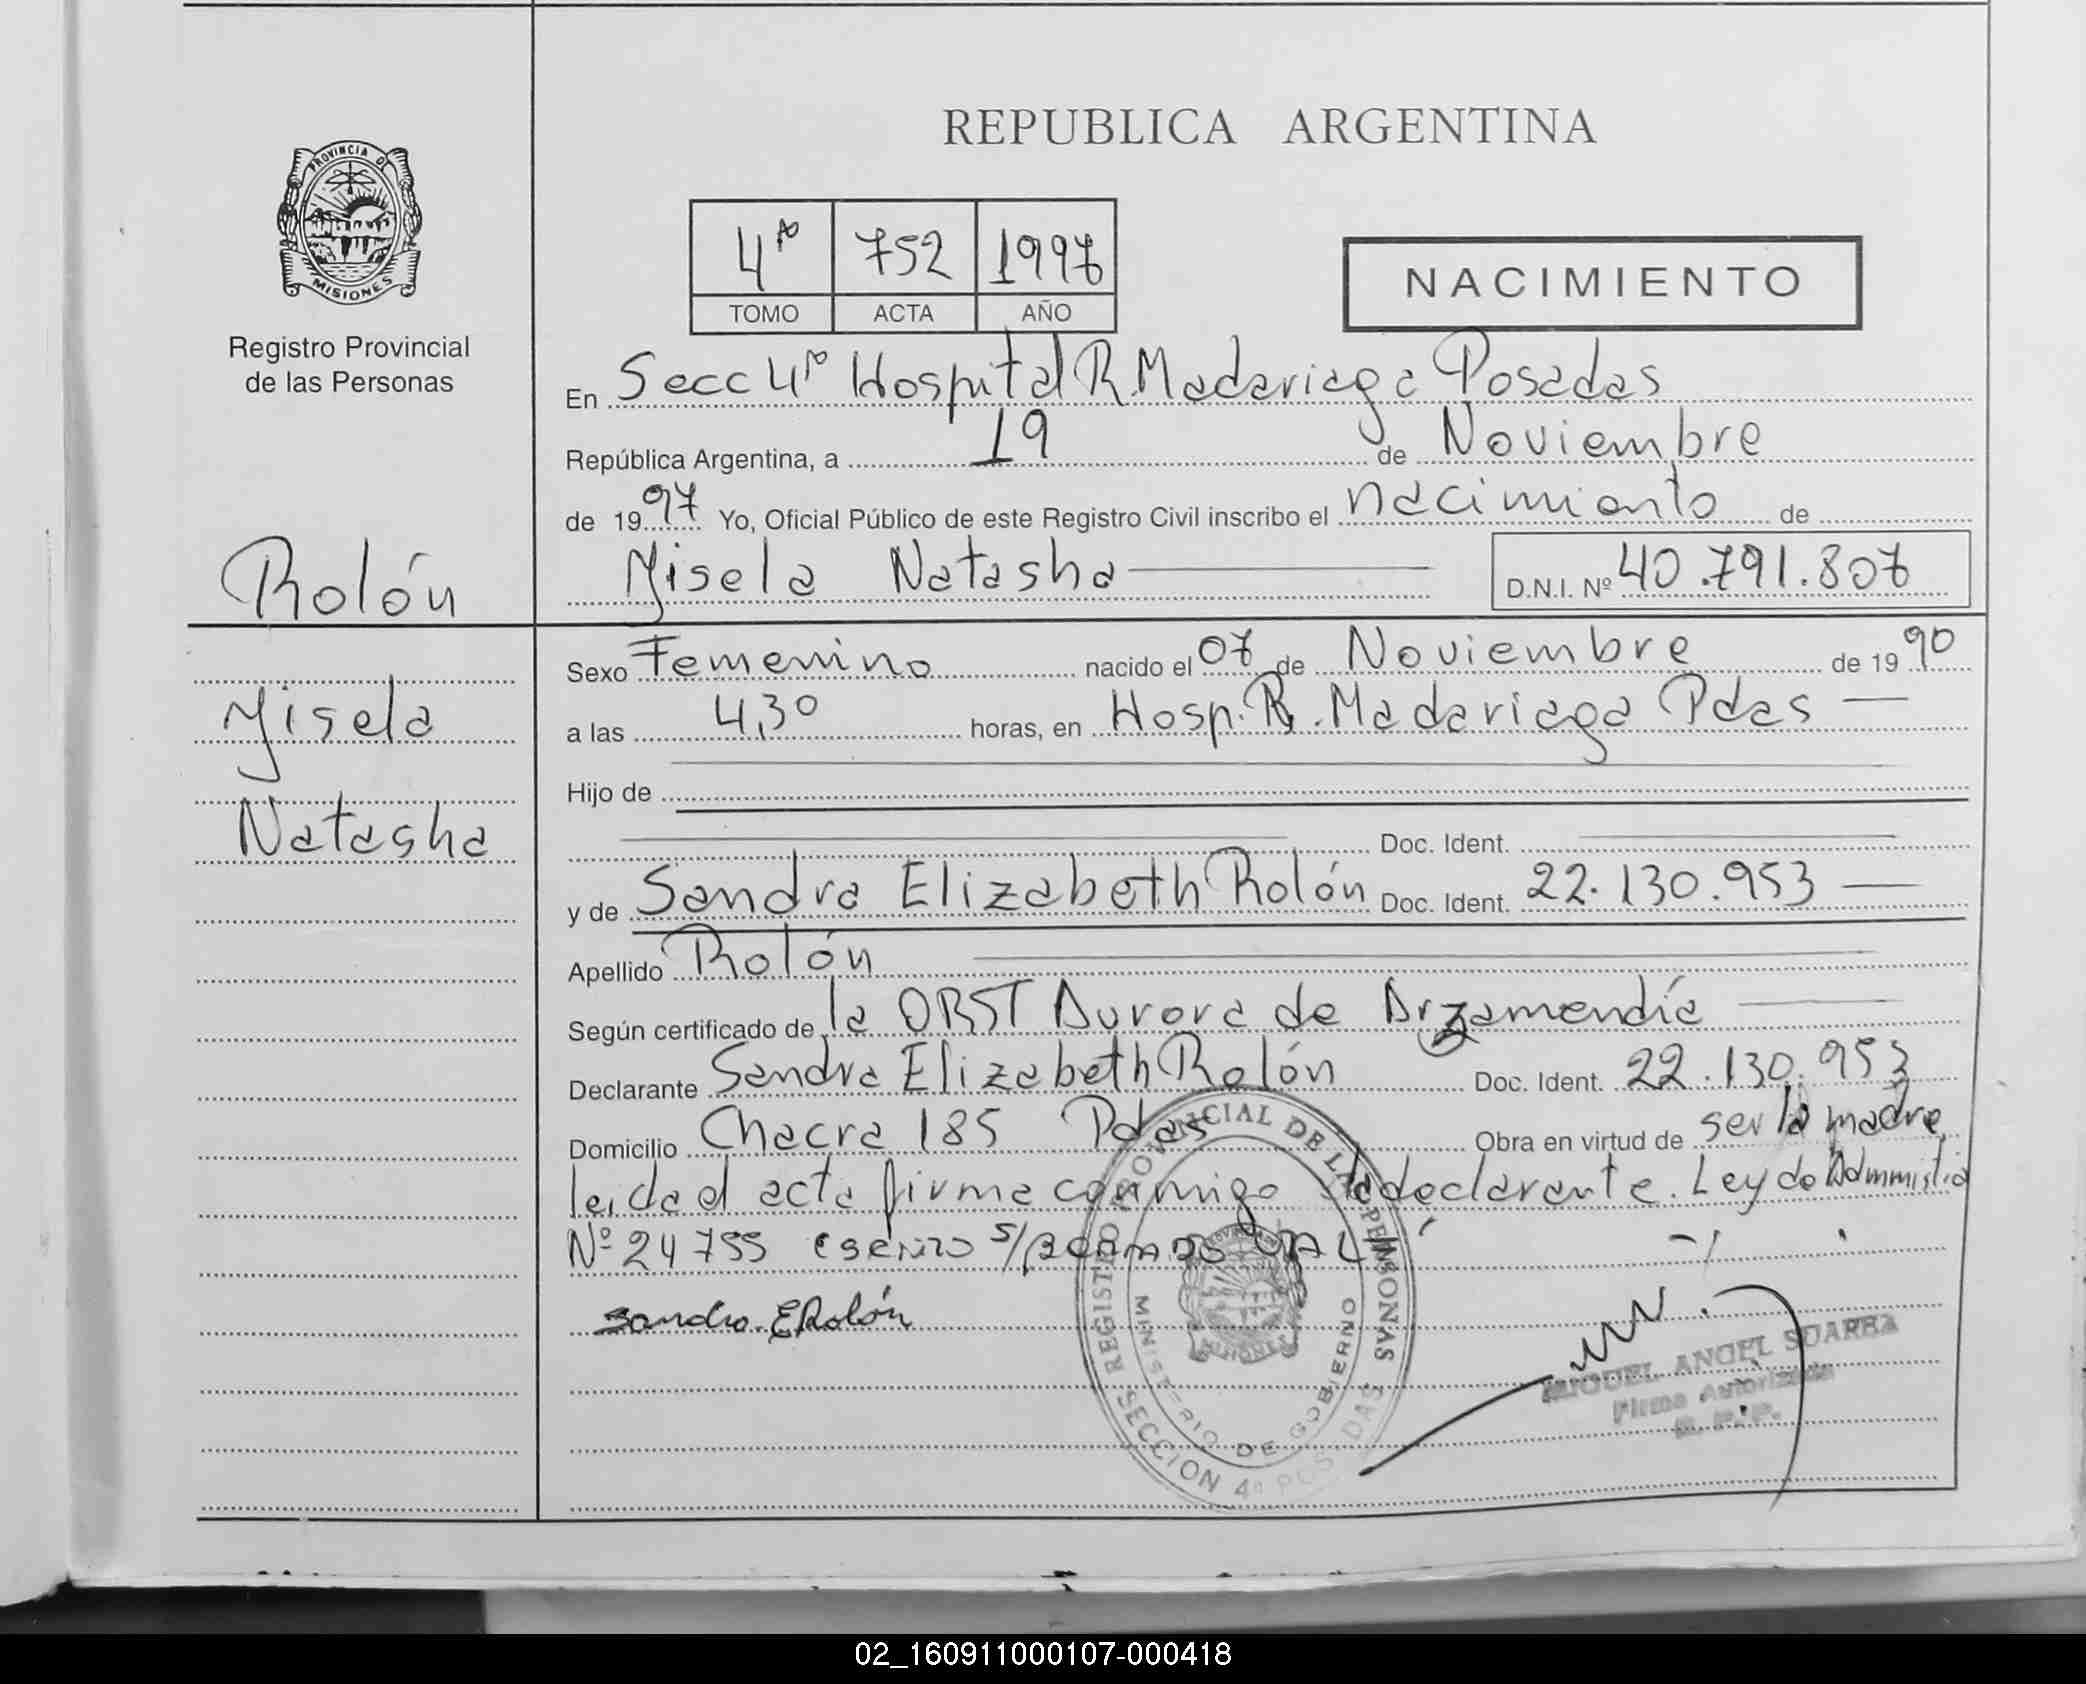 REPUBLICA ARGENTINA
PROVINCIA DE
MISIONES
Registro Provincial
de las Personas
4º 752 1997
TOMO ACTA AÑO
NACIMIENTO
En Secc 4º Hospital R. Madariaga Posadas
República Argentina, a 19 de Noviembre
de 1997 Yo, Oficial Público de este Registro Civil inscribo el nacimiento de
Yisela Natasha D.N.I. Nº 40.791.807
Rolón
Yisela
Natasha
Sexo Femenino nacido el 07 de Noviembre de 1990
a las 4,30 horas, en Hosp. R. Madariaga Pdas
Hijo de
Doc. Ident.
y de Sandra Elizabeth Rolón Doc. Ident. 22.130.953
Apellido Rolón
Según certificado de la OBST Aurora de Arzamendia
Declarante Sandra Elizabeth Rolón Doc. Ident. 22.130.953
Domicilio Chacra 185 Pdas Obra en virtud de ser la madre,
leida el acta firma conmigo la declarante. Ley de
Nº 24755 s/ VALE
Sandra. E Rolón
REGISTRO PROVINCIAL DE LAS PERSONAS
MINISTERIO DE GOBIERNO
SECCION 4º POSADAS
MIGUEL ANGEL SUAREZ
Firma Autorizada
R. P. P.
02_160911000107-000418